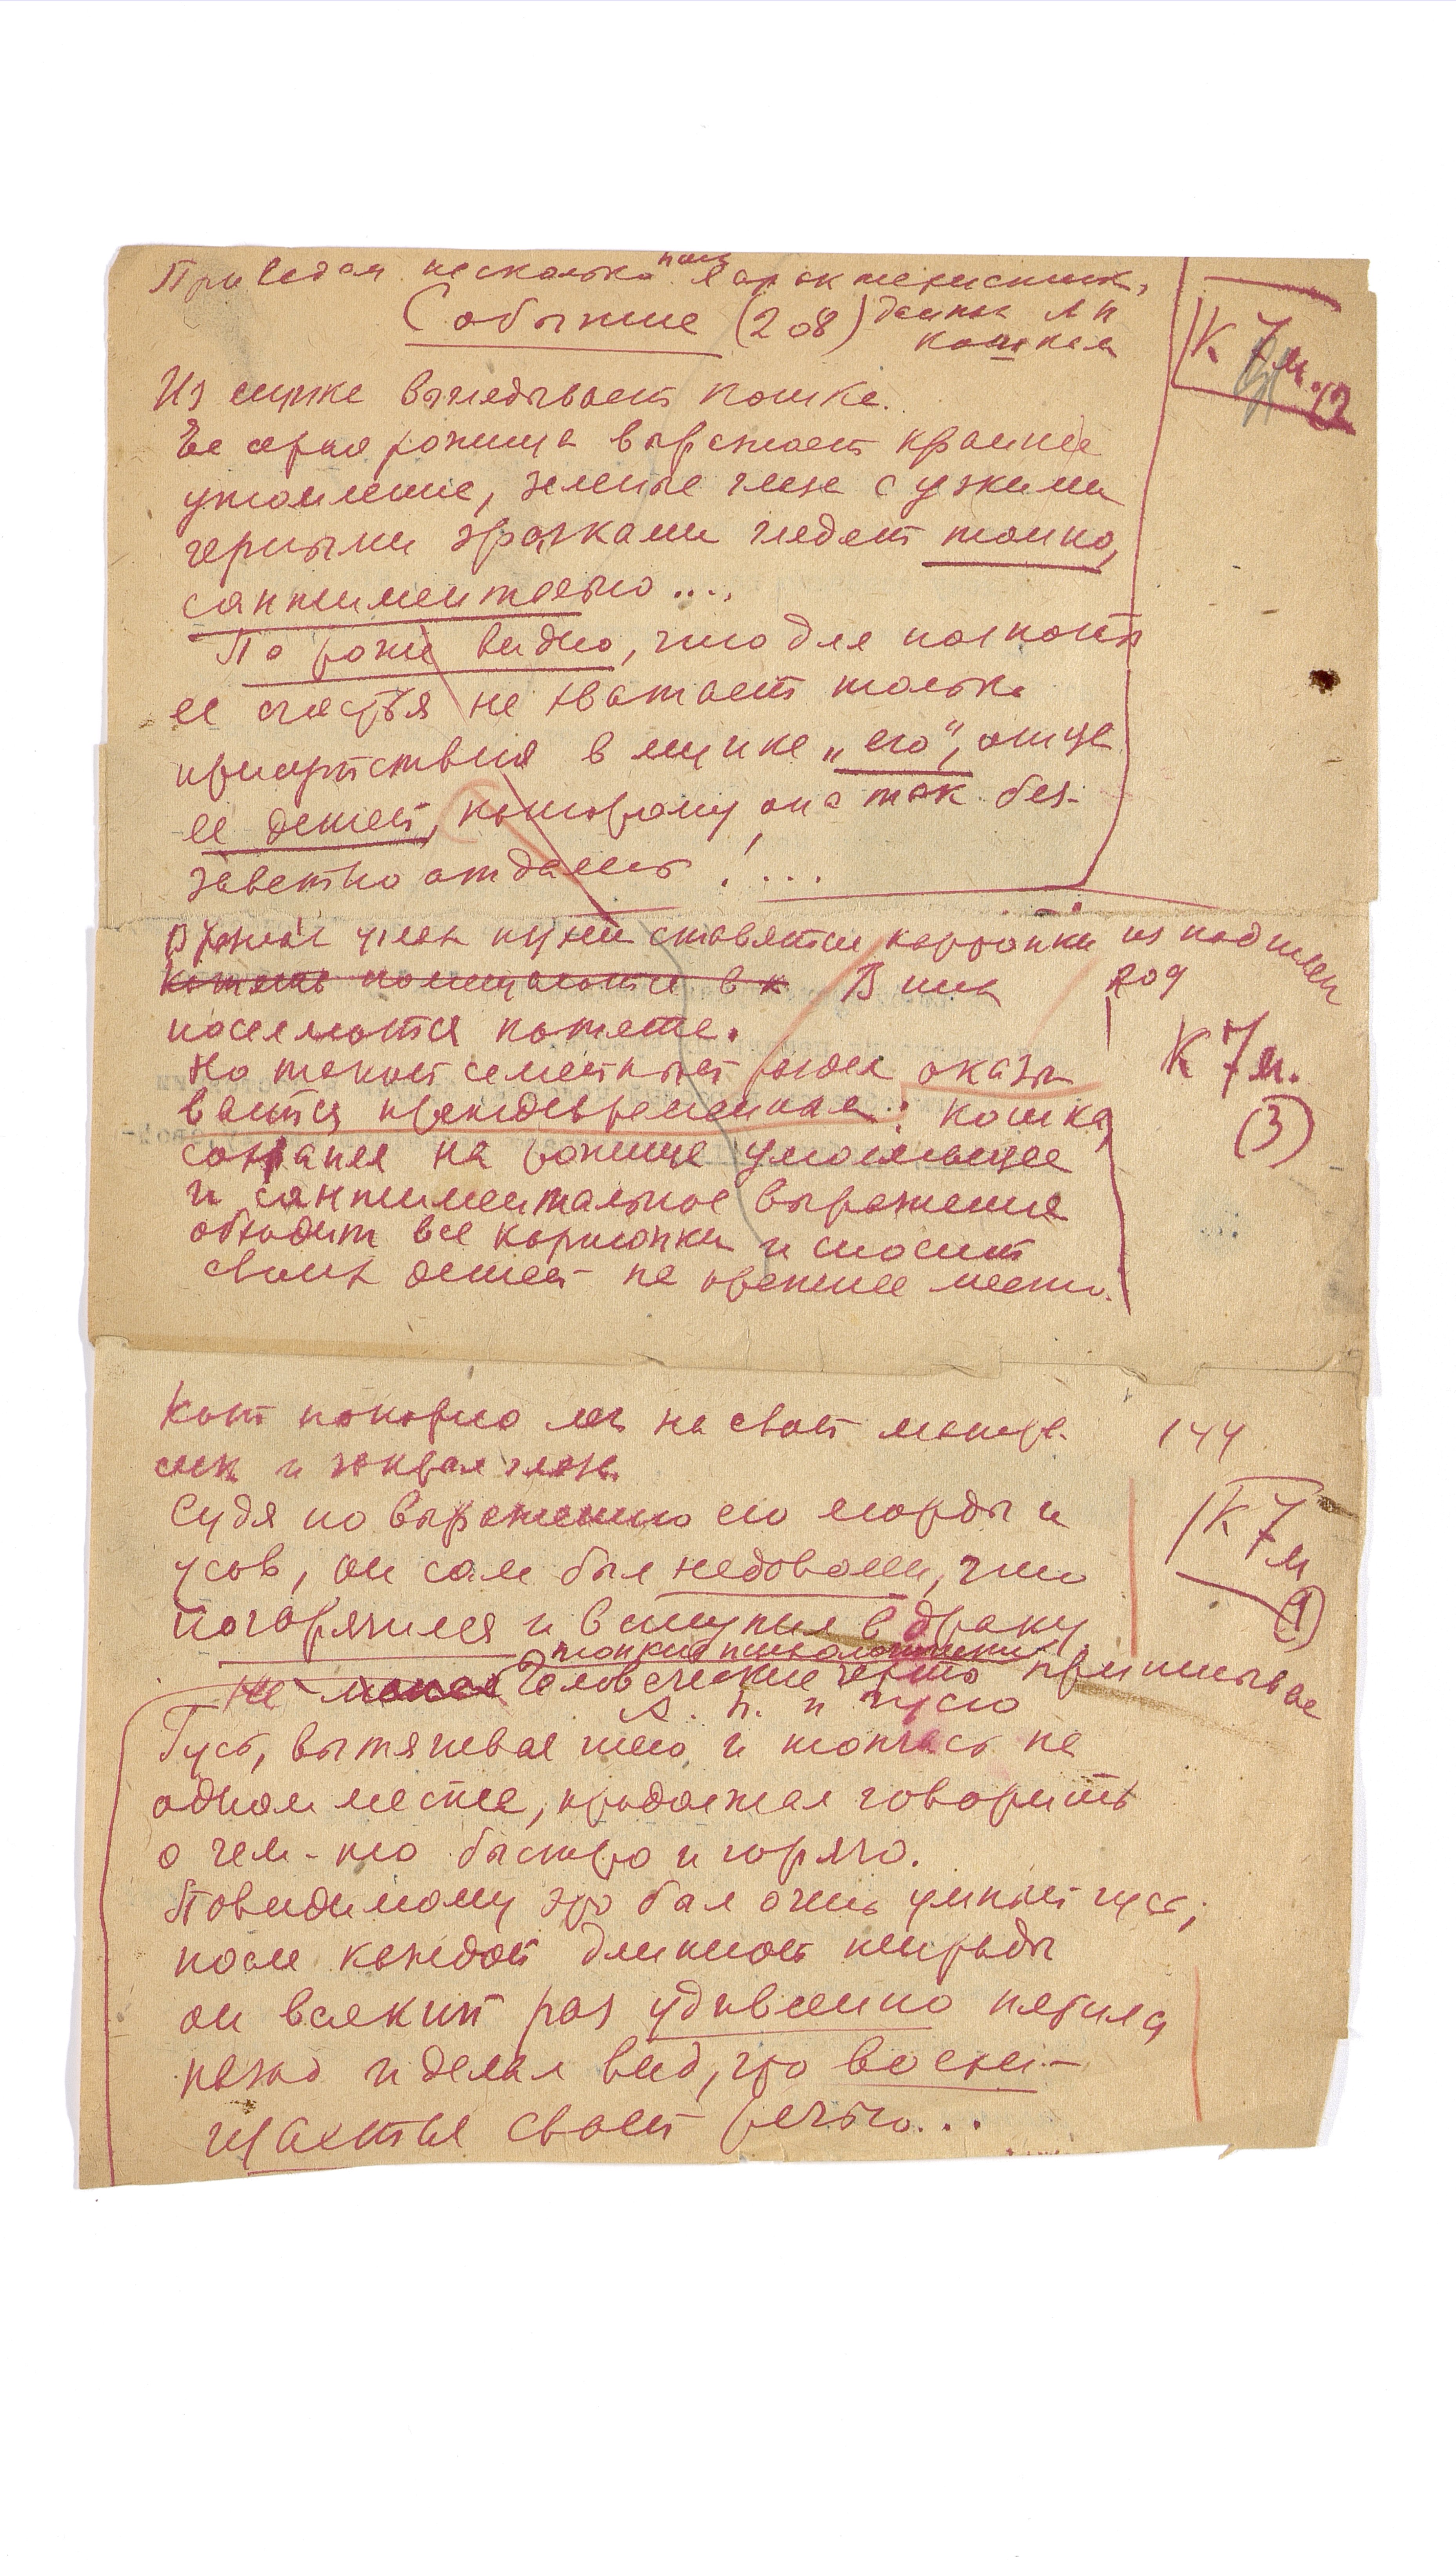 Приведем несколько характеристик,
Событие (208) данных А П
кошкам
К 7 м. (2
Из ящика выглядывает кошка.
Ее серая рожица выражает крайнее
утомление, зеленые глаза с узкими
черными зрачками глядят томно,
сантиментально....
По роже видно, что для полноты
ее счастья не хватает только
присутствия в ящике „его", отца
ее детей, которому она так без-
заветно отдалась!...
В разных углах кухни ставятся коробки из под шляп
котята помещаются в к В них 209
поселяются котята. К 7 м.
Но такой семейный раздел оказы (3)
вается преждевременным: кошка,
сохраняя на рожице умоляющее
и сантиментальное выражение
обходит все коробки и сносит
своих детей на прежнее место.
Кот покорно лег на свой матра- 144
сик и закрыл глаза.
Судя по выражению его морды и К 7 м
усов, он сам был недоволен, что (1)
погорячился и вступил в драку.
тонкие психологические
Не менее человеческие черты приписывает
А. П. и гусю
Гусь, вытягивая шею и топчась на
одном месте, продолжал говорить
о чем-то быстро и горячо.
Повидимому это был очень умный гусь;
после каждой длинной тирады
он всякий раз удивленно пятился
назад и делал вид, что восхи-
щается своей речью...